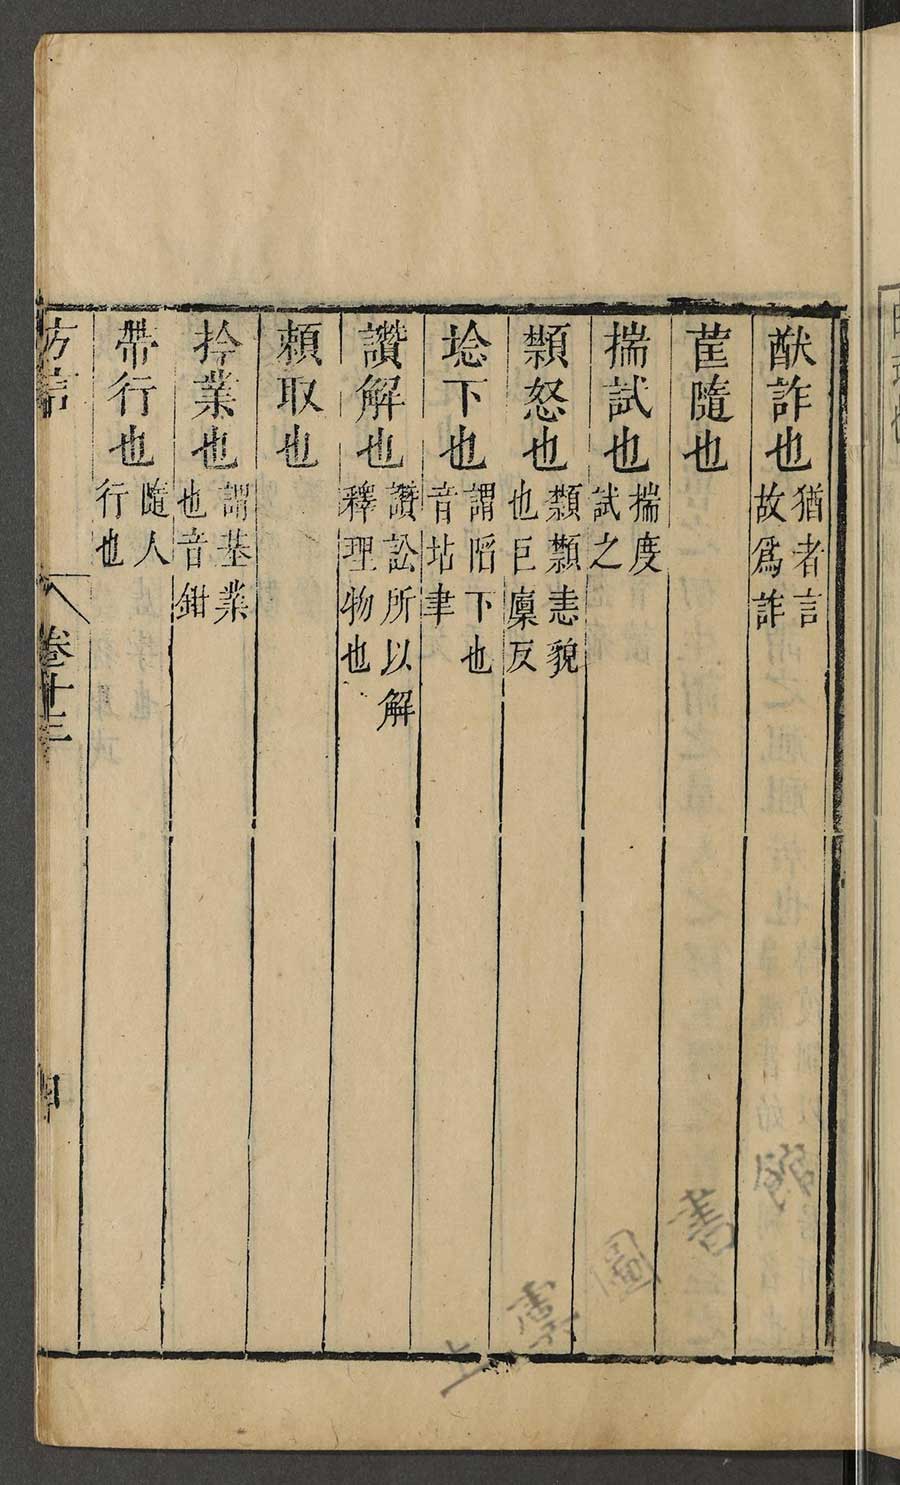 猷詐也 猶者言故爲詐
萑隨也
揣試也 揣度試之
類怒也 類類恚貌也巨廩反
埝下也 謂陷下也音坫肀
讃解也 讃訟所以解釋理物也
賴取也
拎業也 謂基業也音鉗
帶行也 隨人行也
方言 卷十三 四
上 圖書